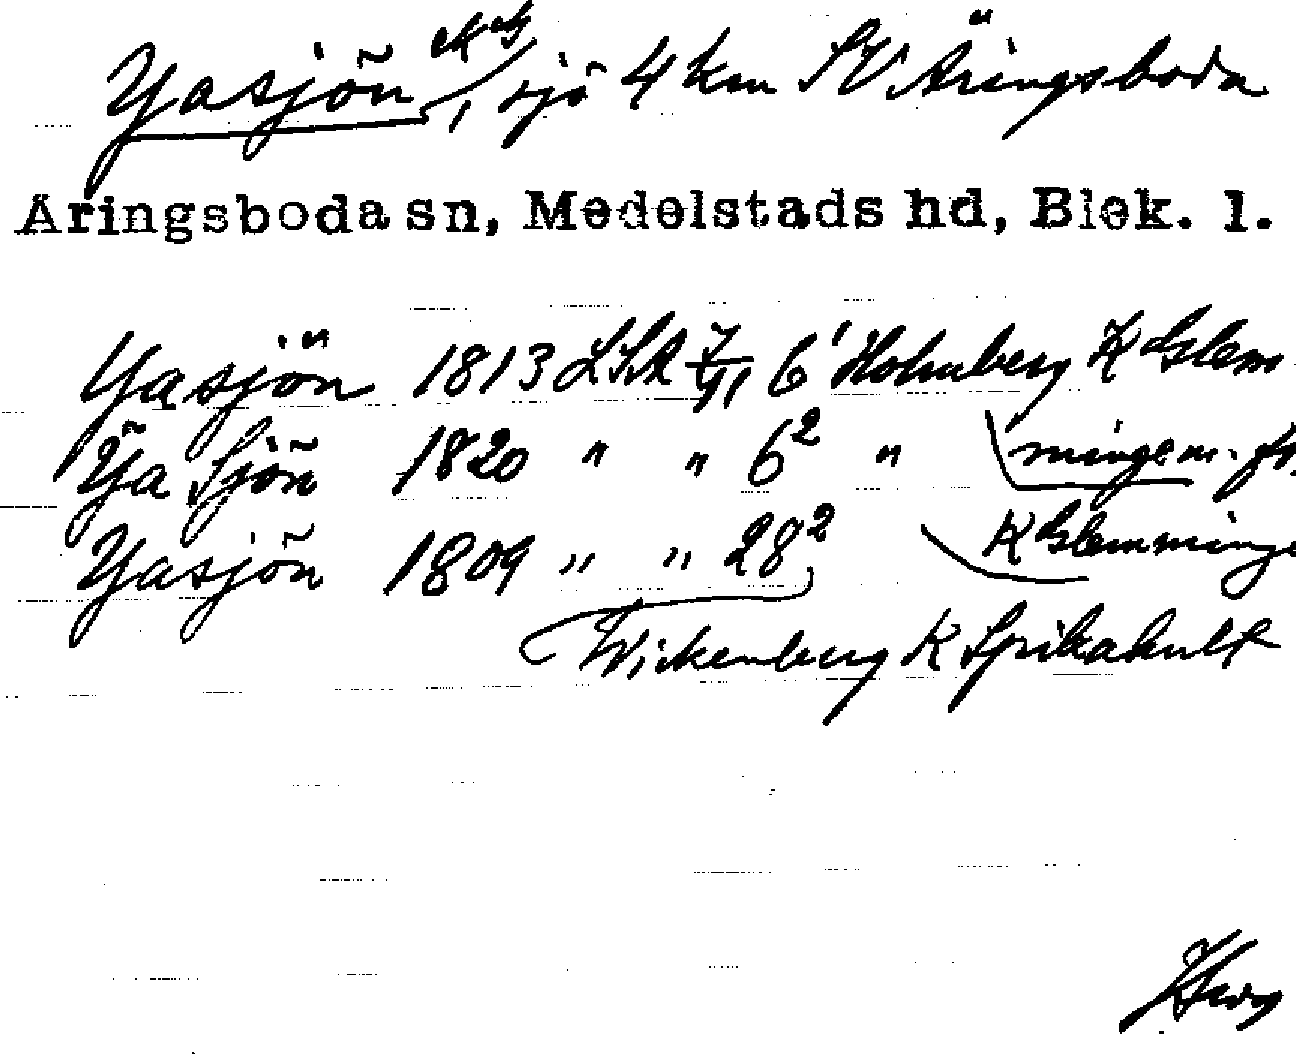 Yasjön ekbl, sjö 4 km SV Äringsboda
Äringsboda sn, Medelstads hd, Blek. l.
Yasjön 1813 LSA 7/VI 6¹ Holmberg K Glem-
Ya Sjön 1820 " " 6² " mingem.
Yasjön 1809 " " 28² K Glemminge
Wickenberg K Spikahult